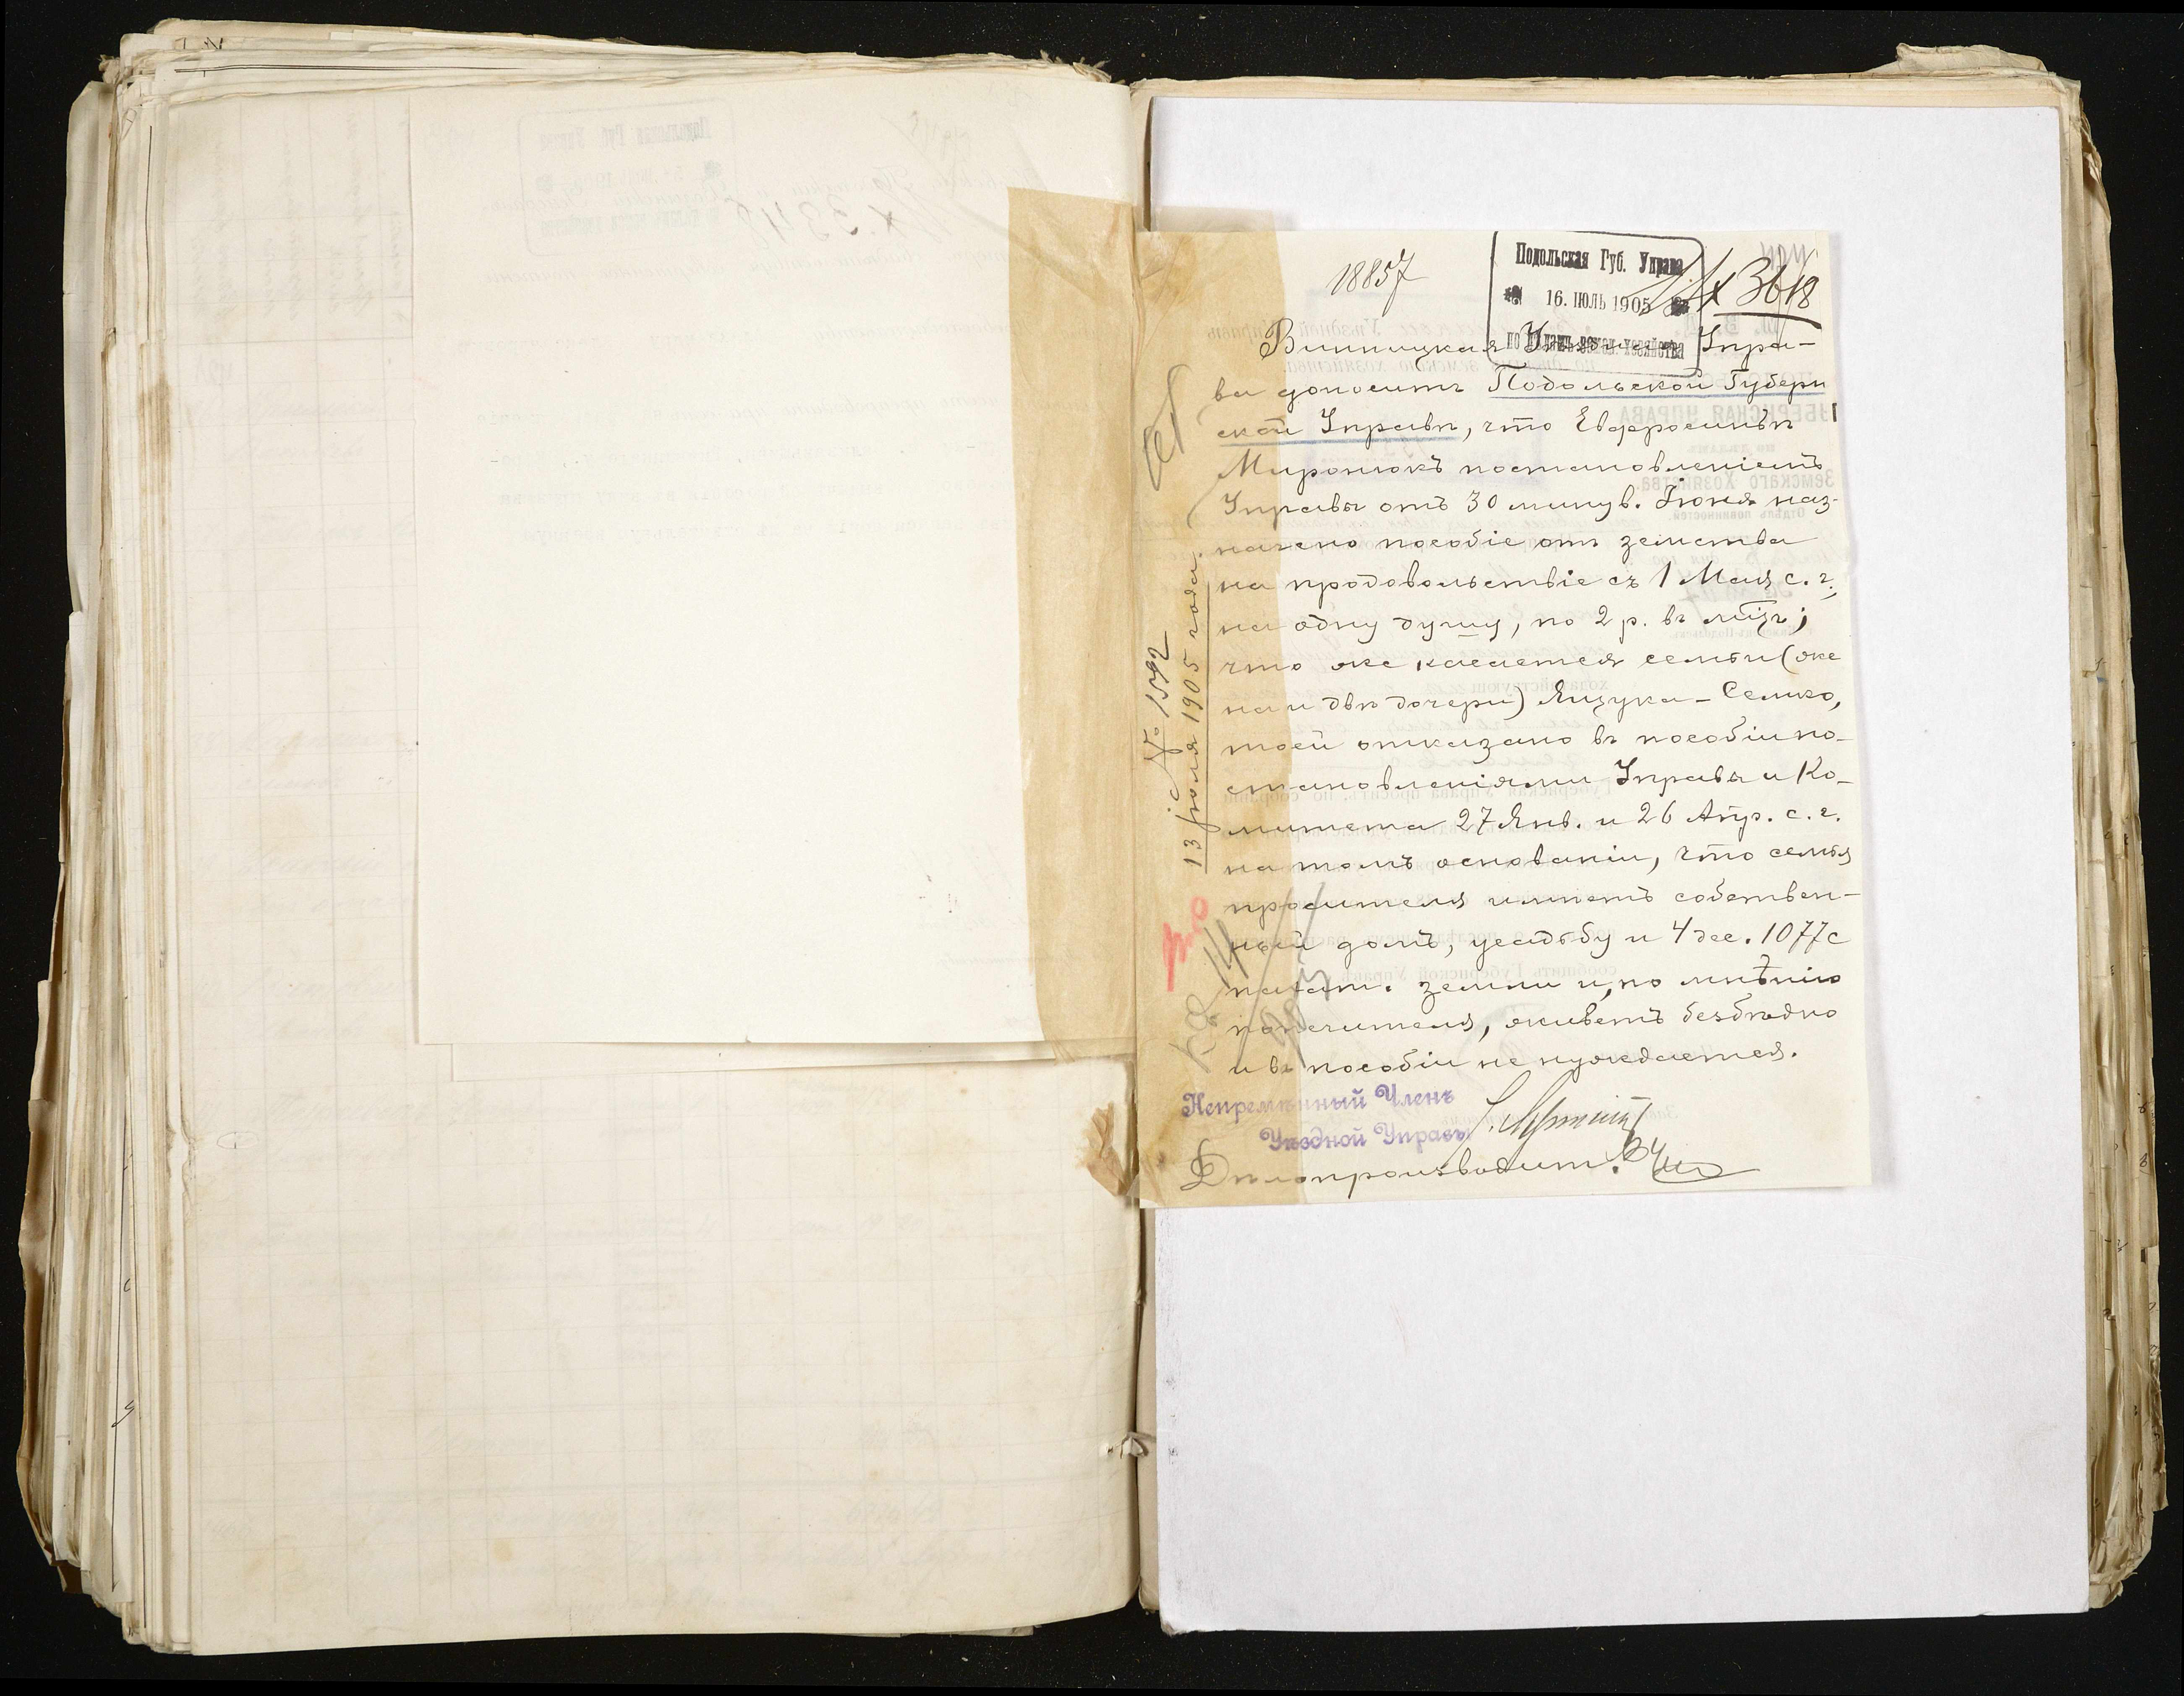 18857
Подольская Губ. Управа
16. ІЮЛЬ 1905
по дѣламъ земск. хозяйства
Вх 3618
Винницкая Уѣздная Упра-
ва доноситъ Подольской Губерн
ской Управѣ, что Евфросиньѣ
Миронюкъ постановленіемъ
Управы отъ 30 минув. Іюня наз-
начено пособіе отъ земства
на продовольствіе съ 1 Мая с. г.,
на одну душу, по 2 р. въ мѣц;
что же касается семьи (же
на и двѣ дочери) Яцука-Семко,
то ей отказано въ пособіи по-
становленіями Управы и Ко-
митета 27 Янв. и 26 Апр. с. г.
на томъ основаніи, что семья
просителя имѣетъ собствен-
ный домъ, усадьбу и 4 дес. 1077 с
пахат. земли и, по мнѣнію
попечителя, живетъ безбѣдно
и въ пособіи не нуждается.
Непремѣнный Членъ
Уѣздной Управы
Дѣлопроизводит.
№ 1592
13 Іюля 1905 года